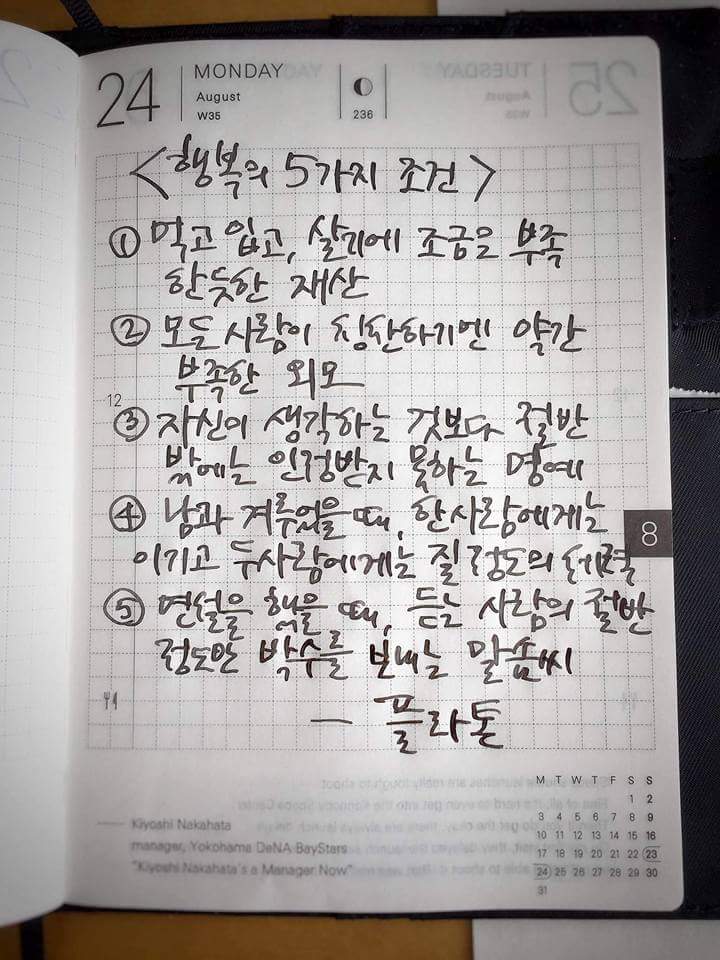 24
MONDAY
August
W35
236
<행복의 5가지 조건>
① 먹고 입고, 살기에 조금은 부족
한듯한 재산
② 모든 사람이 칭찬하기엔 약간
부족한 외모
12
③ 자신이 생각하는 것보다 절반
밖에는 인정받지 못하는 명예
④ 남과 겨루었을 때, 한사람에게는
8
이기고 두사람에게는 질 정도의 체력
⑤ 연설을 했을 때, 듣는 사람의 절반
정도만 박수를 보내는 말솜씨
— 플라톤
M T W T F S S
1 2
3 4 5 6 7 8 9
10 11 12 13 14 15 16
17 18 19 20 21 22 23
24 25 26 27 28 29 30
31
— Kiyoshi Nakahata
manager, Yokohama DeNA BayStars
"Kiyoshi Nakahata's a Manager Now"